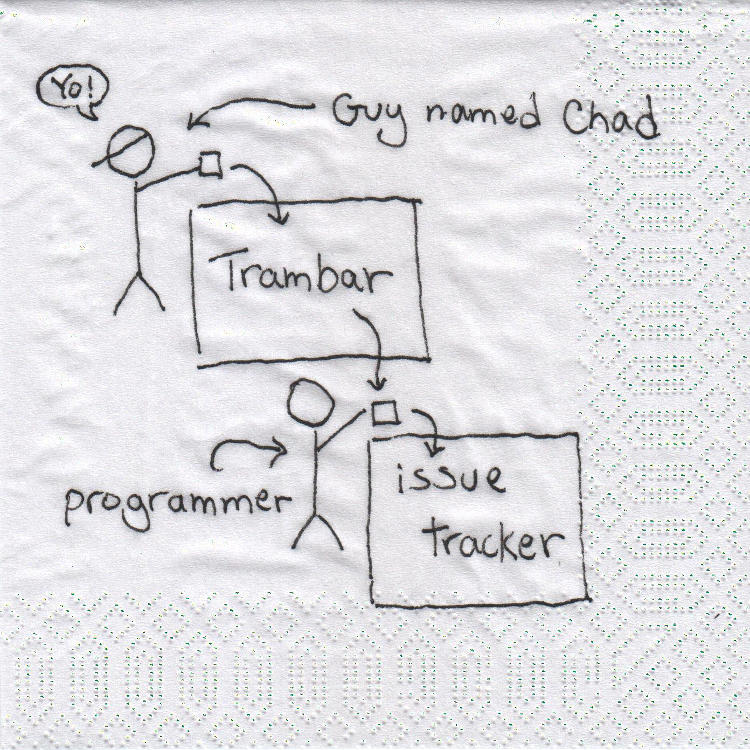 Yo!
Guy named Chad
Trambar
programmer
issue
tracker